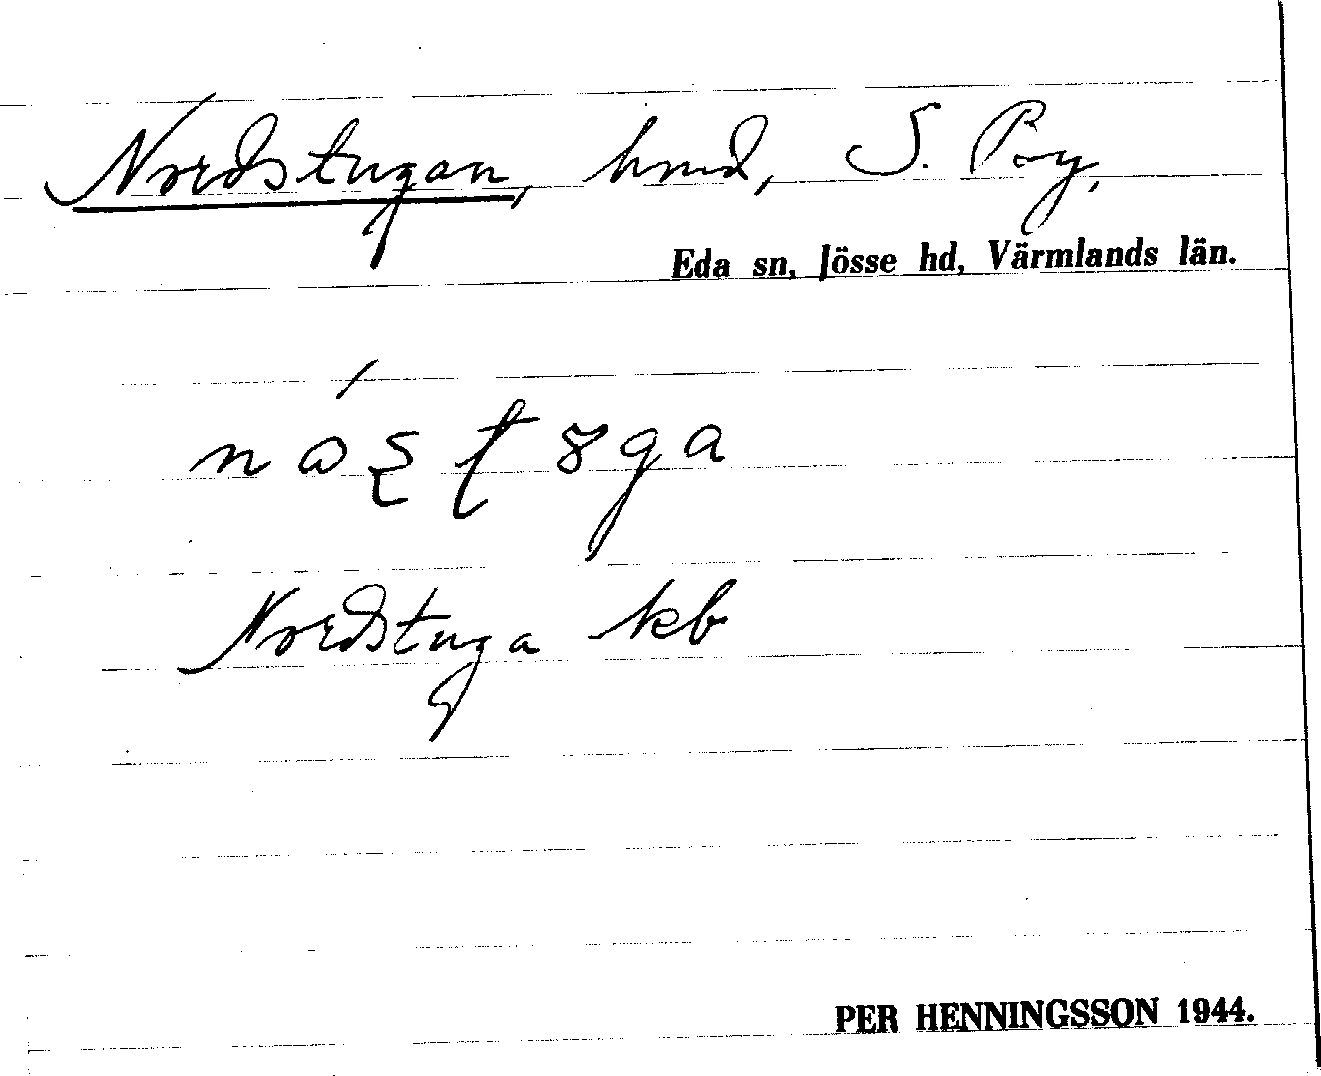 Nordstugan, hmd, S. Päy,
Eda sn, Jösse hd, Värmlands län.
Nordstuga kb
PER HENNINGSSON 1944.